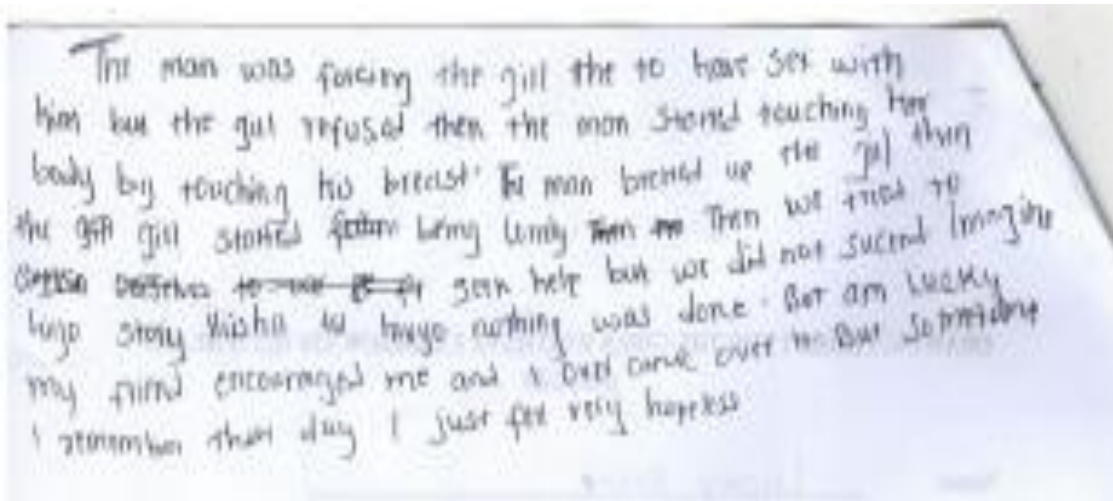 The man was forcing the gill the to have sex with
him but the gul refused then the man started touching her
body by touching his breast. The man breaked up the gil then
the gill started being lonely Then we tried to
seek help but we did not succed Imagine
hiyo story iliisha tu hivyo nothing was done. But am lucky
my friend encouraged me and I over came over it But sometime
I remember that day I just feel very hopeless